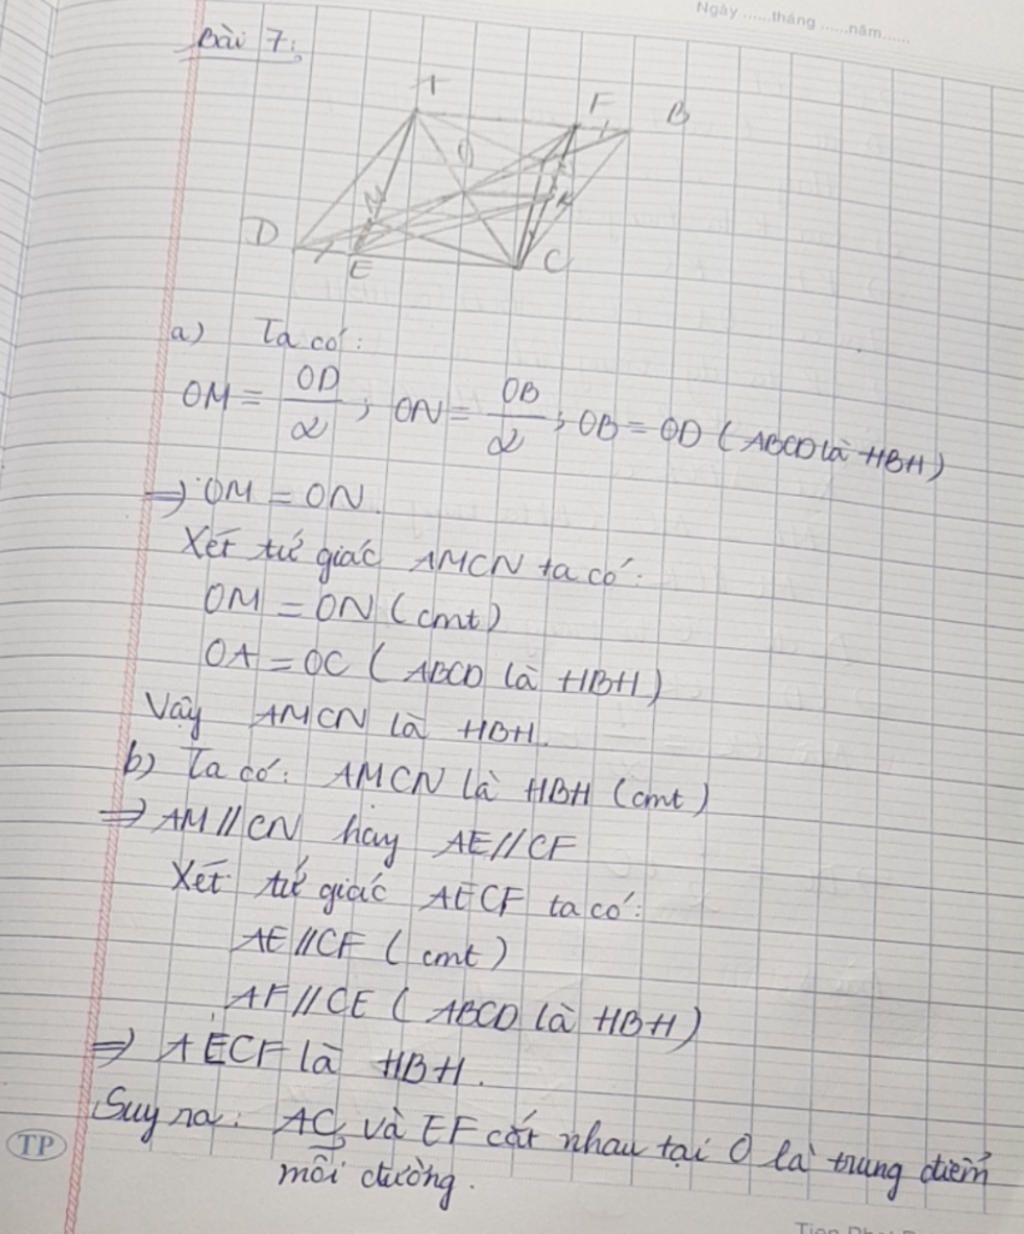 Ngày ......tháng ......năm......
Bài 7:
A
F
B
O
N
D
E
C
a) Ta có:
OM = OD/2 ; ON = OB/2 ; OB = OD ( ABCD là HBH )
=> OM = ON.
Xét tứ giác AMCN ta có:
OM = ON ( cmt )
OA = OC ( ABCD là HBH )
Vậy AMCN là HBH.
b) Ta có: AMCN là HBH ( cmt )
=> AM // CN hay AE // CF
Xét tứ giác AECF ta có:
AE // CF ( cmt )
AF // CE ( ABCD là HBH )
=> AECF là HBH.
Suy ra: AC và EF cắt nhau tại O là trung điểm
mỗi đường.
TP